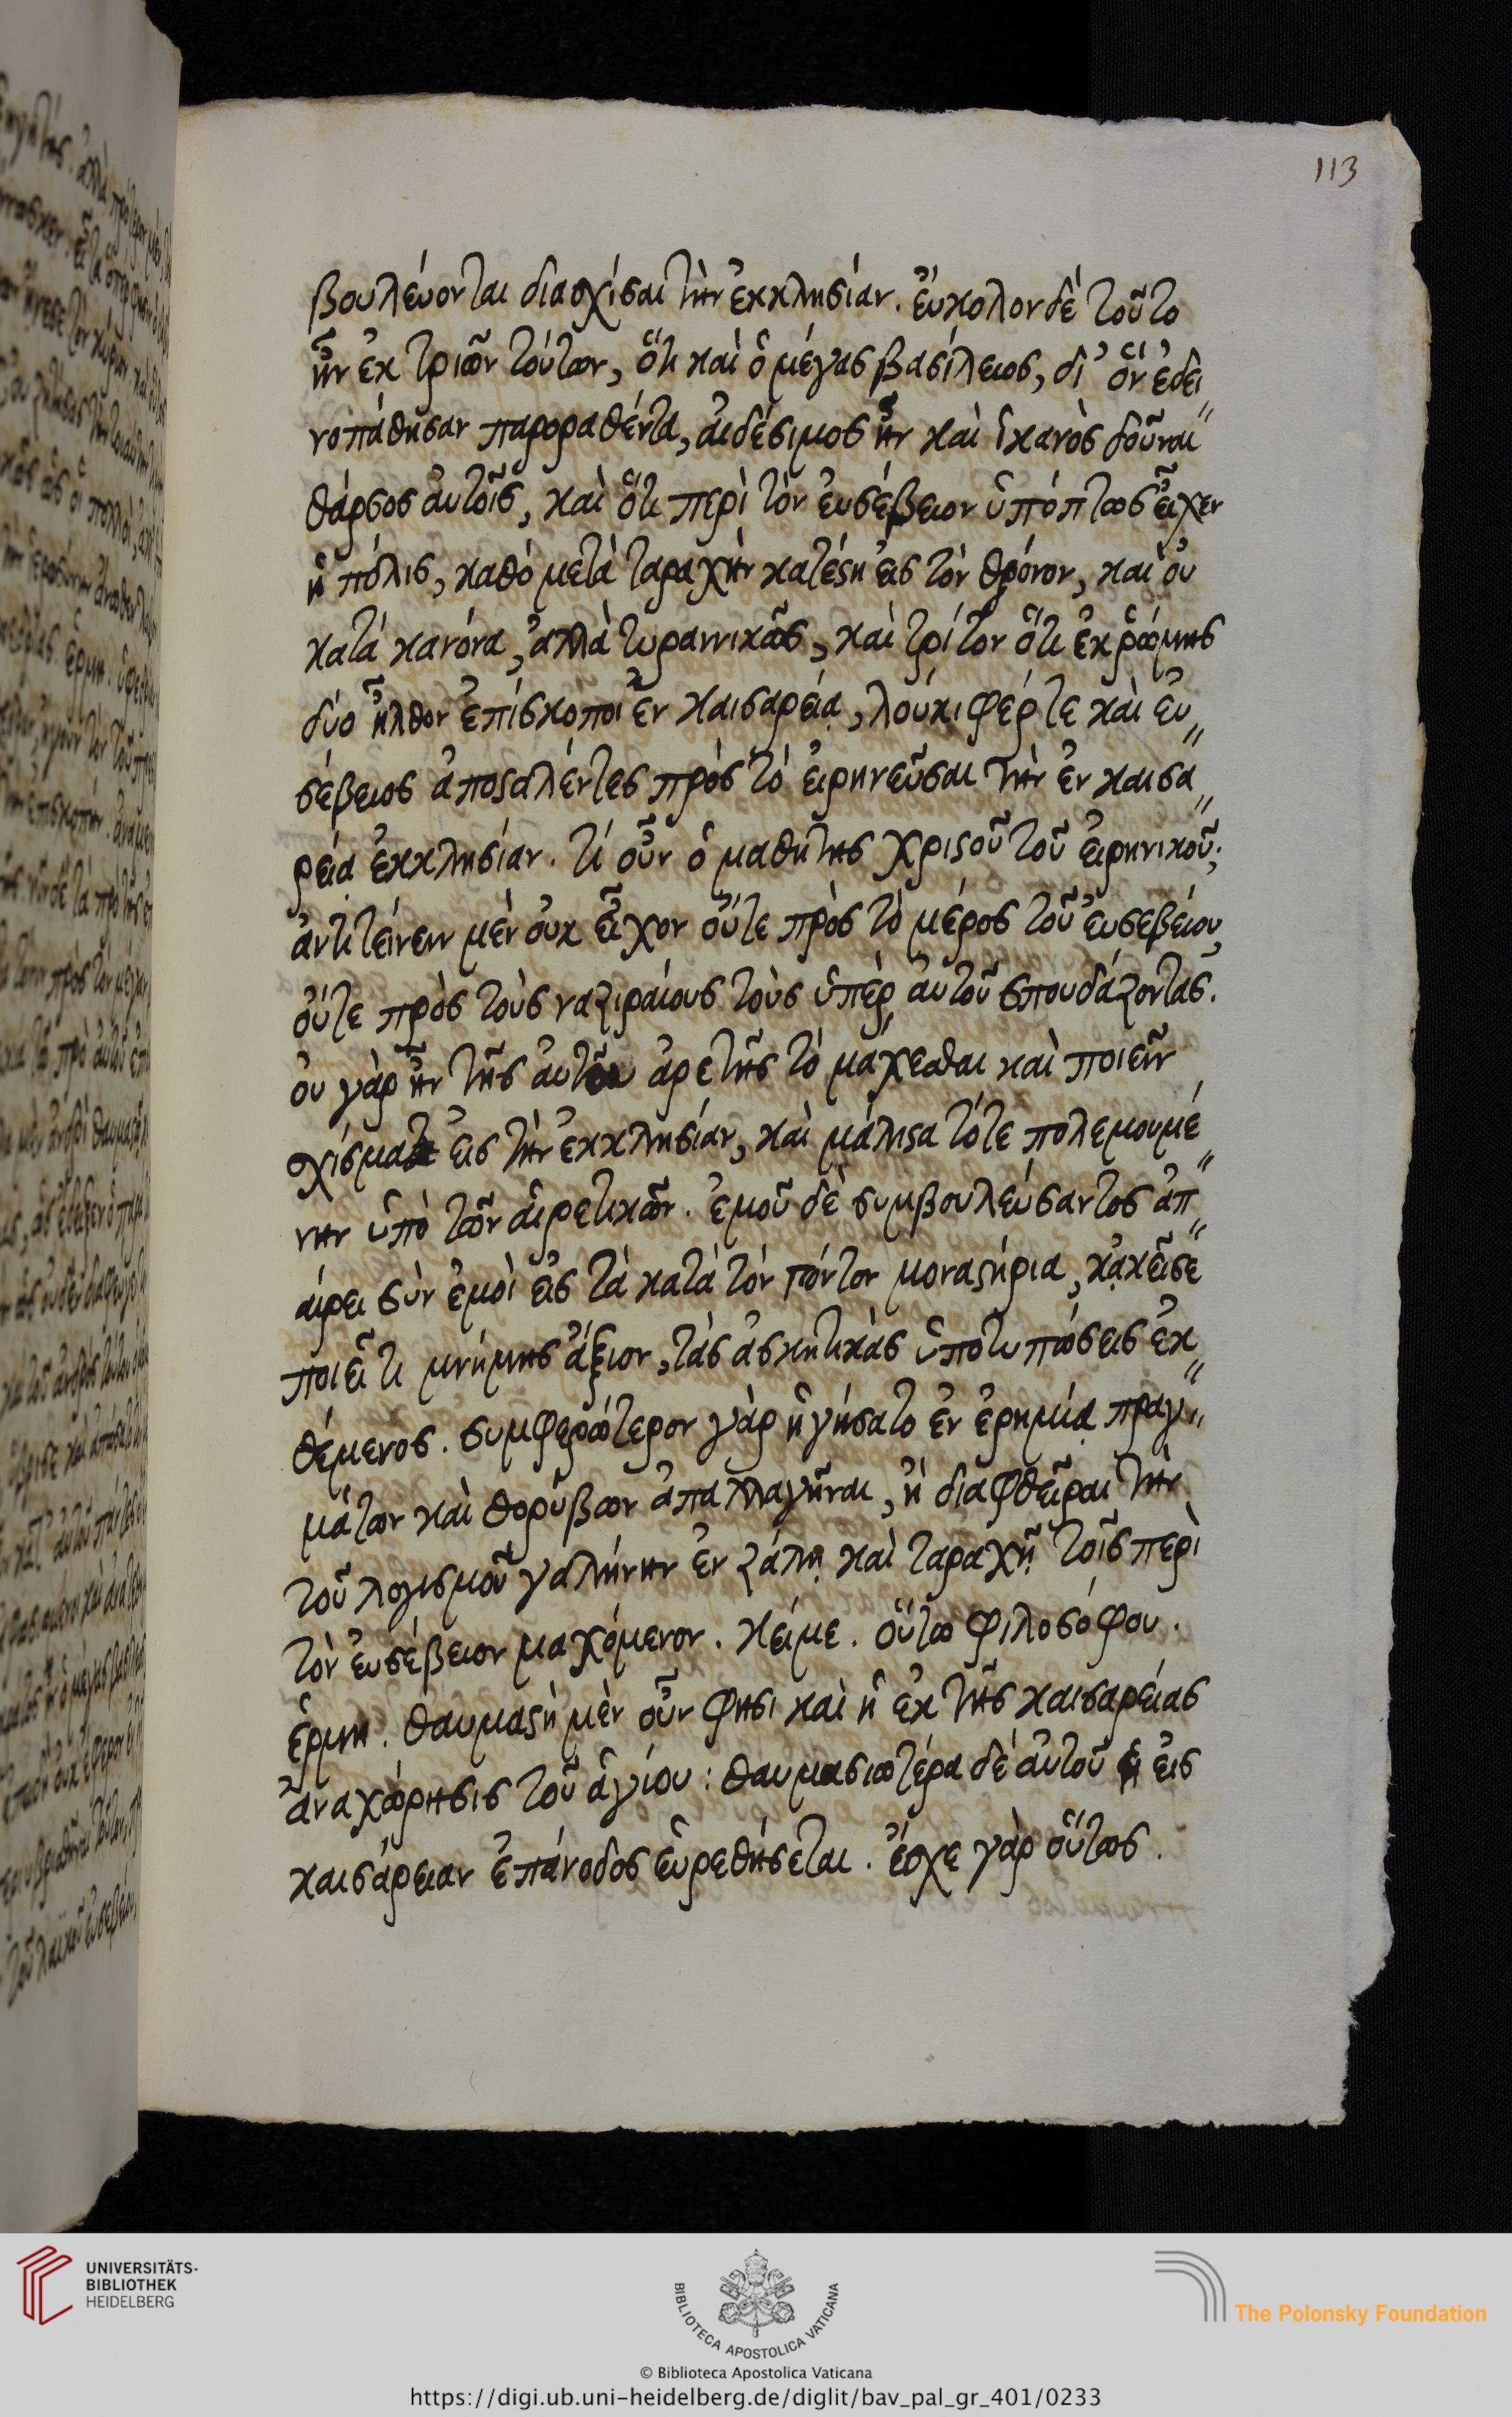 113
βουλεύονται διασχίσαι τὴν ἐκκλησίαν. ἐύκολον δὲ τοῦτο
ἦν ἐκ τριῶν τούτων, ὅτι καὶ ὁ μέγας βασίλειος, δι' ὃν ἐδει
νοπάθησαν παροραθέντα, ἀιδέσιμος ἦν καὶ ἱκανὸς δοῦναι
θάρσος ἀυτοῖς, καὶ ὅτι περὶ τὸν ἐυσέβειον ὑπόπτως εἶχεν
ἡ πόλις, καθὸ μετὰ ταραχὴν κατέστη εἰς τὸν θρόνον, καὶ ὀυ
κατὰ κανόνα, ἀλλὰ τυραννικῶς, καὶ τρίτον ὅτι ἐκ ῥώμης
δύο ἦλθον ἐπίσκοποι ἐν καισαρείᾳ, λουκιφέρ τε καὶ ἐυ
σέβειος ἀποσταλέντες πρὸς τὸ εἰρηνεῦσαι τὴν ἐν καισα
ρείᾳ ἐκκλησίαν. τί οὖν ὁ μαθητὴς χριστοῦ τοῦ εἰρηνικοῦ;
ἀντιτείνειν μὲν ὀυκ εἶχον ὄυτε πρὸς τὸ μέρος τοῦ ἐυσεβείου,
ὄυτε πρὸς τοὺς ναζιραίους τοὺς ὑπὲρ ἀυτοῦ σπουδάζοντας.
ὀυ γὰρ ἦν τῆς ἀυτοῦ ἀρετῆς τὸ μάχεσθαι καὶ ποιεῖν
σχίσματα εἰς τὴν ἐκκλησίαν, καὶ μάλιστα τότε πολεμουμέ
νην ὑπὸ τῶν αἱρετικῶν. ἐμοῦ δὲ συμβουλεύσαντος ἀπ
αίρει σὺν ἐμοὶ εἰς τὰ κατὰ τὸν πόντον μοναστήρια, κἀκεῖσε
ποιεῖ τι μνήμης ἄξιον, τὰς ἀσκητικὰς ὑποτυπώσεις ἐκ
θέμενος. συμφερώτερον γὰρ ἡγήσατο ἐν ἐρημίᾳ πραγ
μάτων καὶ θορύβων ἀπαλλαγῆναι, ἢ διαφθεῖραι τὴν
τοῦ λογισμοῦ γαλήνην ἐν ζάλῃ καὶ ταραχῇ τοῖς περὶ
τὸν ἐυσέβειον μαχόμενον. κείμε. ὅυτω φιλοσόφου.
ἑρμη. θαυμαστὴ μὲν οὖν φησι καὶ ἡ ἐκ τῆς καισαρείας
ἀναχώρησις τοῦ ἁγίου: θαυμασιωτέρα δὲ ἀυτοῦ ἡ εἰς
καισάρειαν ἐπάνοδος ἑυρεθήσεται. ἔσχε γὰρ ὅυτως.
UNIVERSITÄTS-
BIBLIOTHEK
HEIDELBERG
BIBLIOTECA APOSTOLICA VATICANA
The Polonsky Foundation
© Biblioteca Apostolica Vaticana
https://digi.ub.uni-heidelberg.de/diglit/bav_pal_gr_401/0233